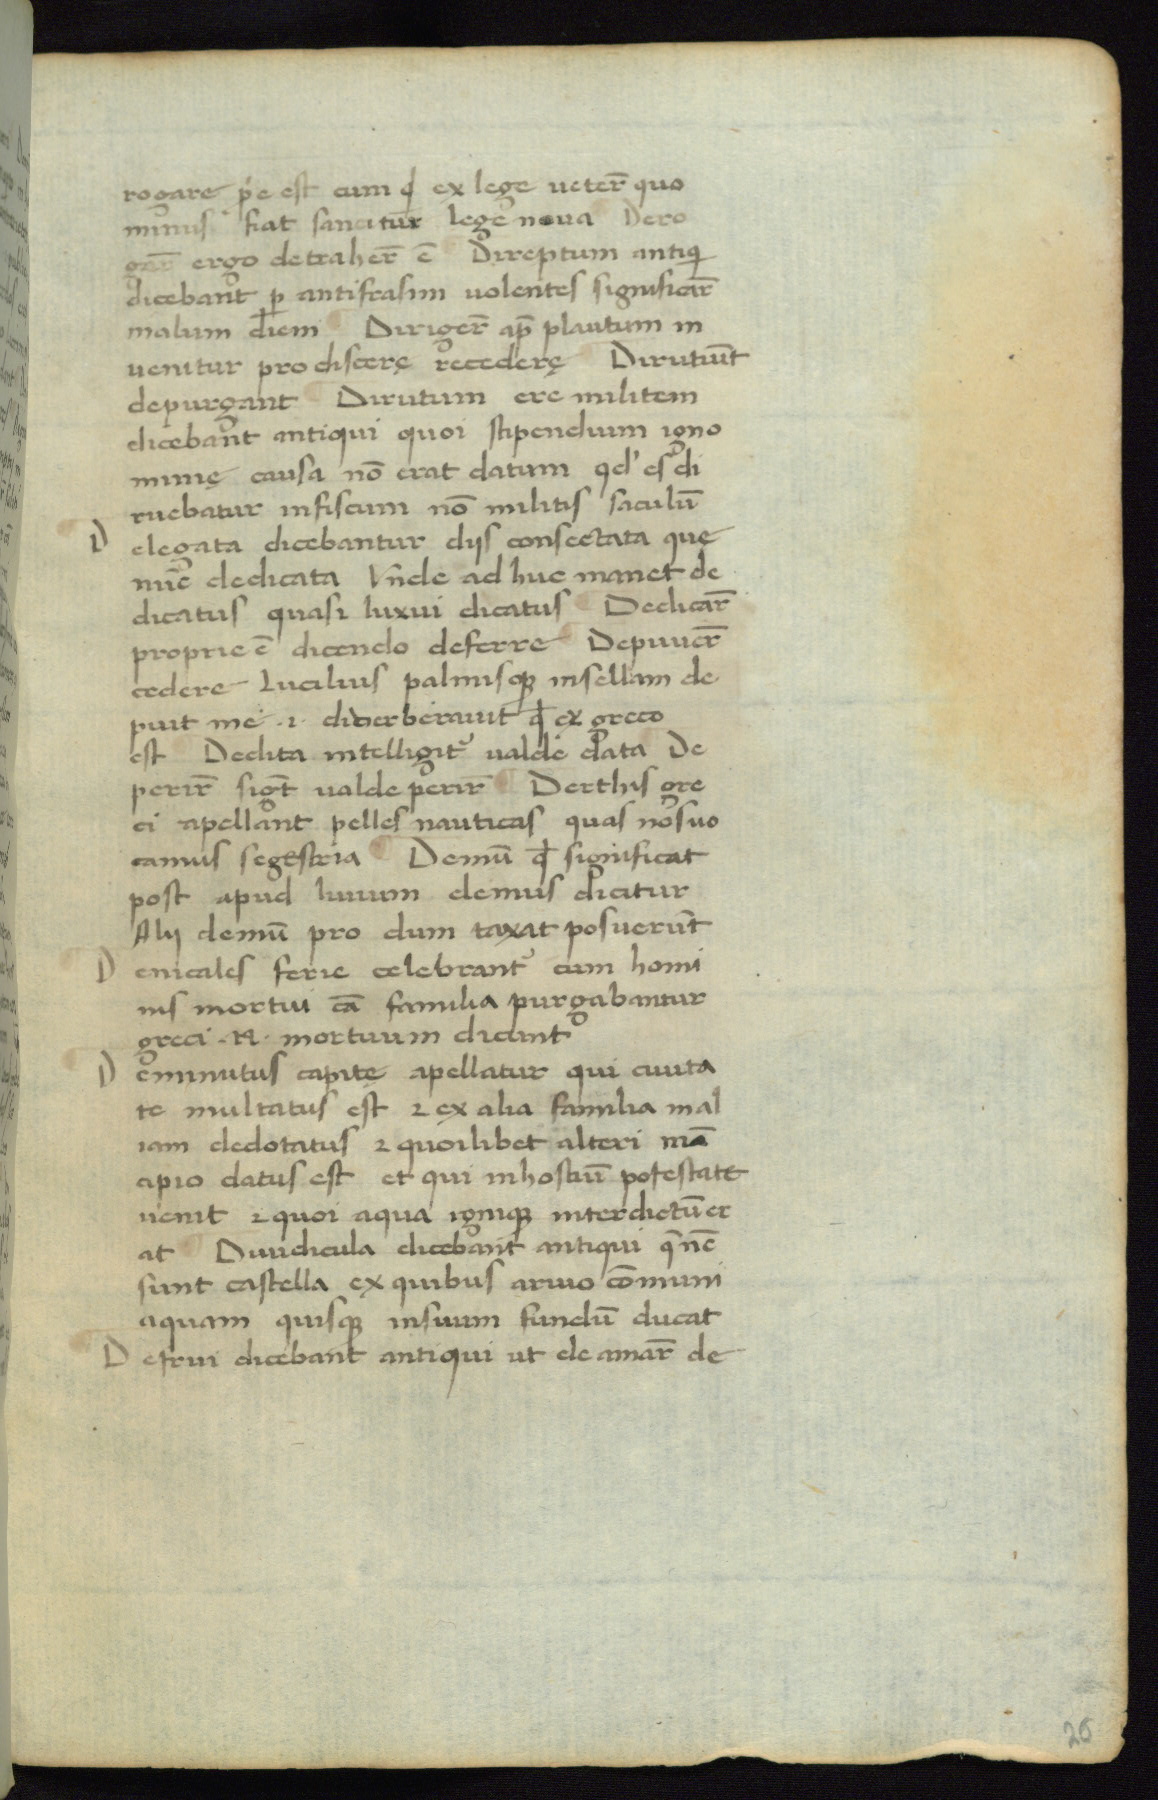 rogare p̄e est cum qd̄ ex lege ueter̄ quo
minus fiat sancitur lege noua Dero
gar̄ ergo detraher̄ ē Direptum antiqi
dicebant p̱ antifrasim uolentes significar̄
malum diem Diriger̄ ap̄ plautum in
uenitur pro discerę recederę Dirutiūt
depurgant Dirutum ere militem
dicebant antiqui quoi stipendium igno
minię causa nō erat datum qd' es di
ruebatur infiscum nō militis saculū
D elegata dicebantur dijs consectata quę
nūc dedicata Vnde ad huc manet de
dicatus quasi luxui dicatus Dedicar̄
proprie ē dicendo deferre Depuuer̄
cedere Lucilius palmisqꝫ insellam de
puit me .i. diuerberauit qd̄ ex greco
est Dedita intelligit᷑ ualde data De
perir̄ sigt̄ ualde perir̄ Derthis gre
ci apellant pelles nauticas quas nosuo
camus segestria Demū qd̄ significat
post apud liuium demus dicitur
Alij demū pro dum taxat posuerūt
D enicales ferie celebrant᷑ cum homi
nis mortui cā familia purgabantur
greci .N. mortuum dicunt
D eminutus capitę apellatur qui ciuita
te multatus est ⁊ ex alia familia in al
iam dedotatus ⁊ quoilibet alteri mā
cipio datus est et qui inhostiū potestate
uenit ⁊ quoi aqua igniqꝫ interdictū er
at Diuidicula dicebant antiqui q̄ nc̄
sunt castella ex quibus ariuo cōmuni
aquam quisqꝫ insuum fundū ducat
D efrui dicebant antiqui ut de amar̄ de
26